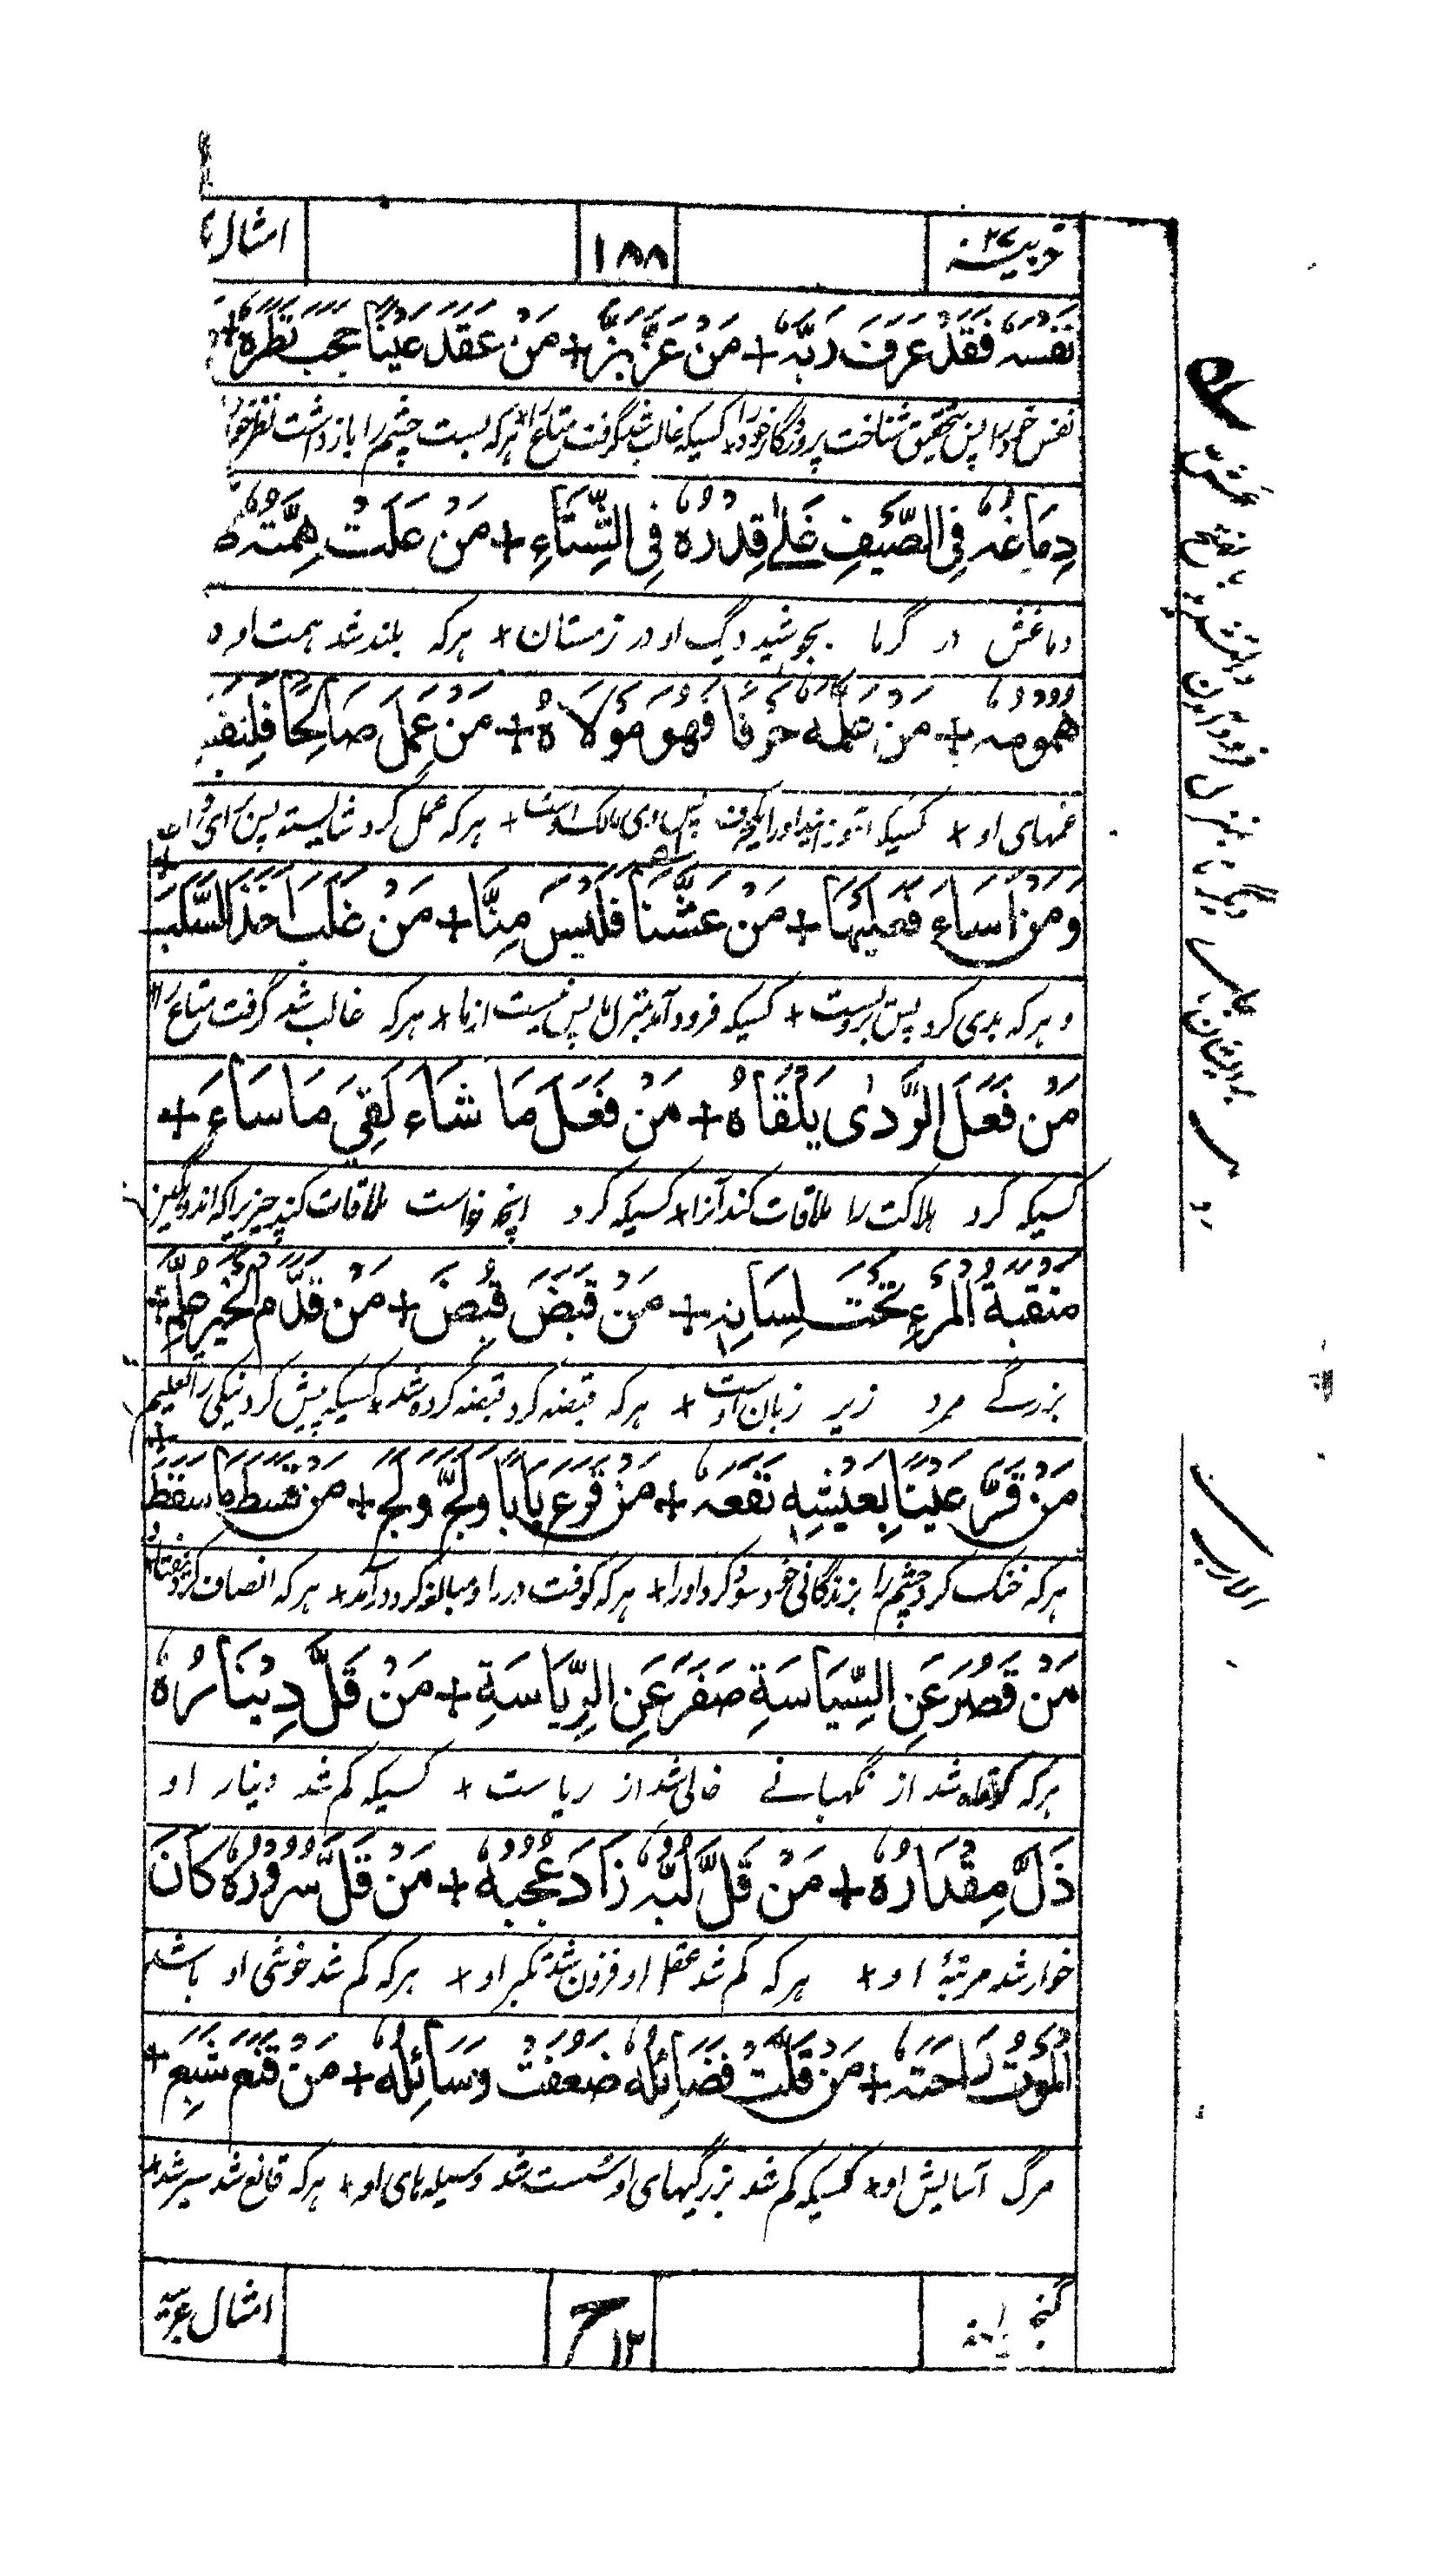 خزینہ ۲۶ ۱۸۸ امثال
نَفْسَهٗ فَقَدْ عَرَفَ رَبَّهٗ + مَنْ عَزَّ بَزَّ + مَنْ عَقَدَ عَيْنًا حَجَبَ نَظَرَهٗ +
نفس خود را پس بتحقیق شناخت پروردگار خود را + کسیکه غالب شد گرفت متاع را + هرکه بست چشم را بازداشت نظر خود
دِمَاغُهٗ فِی الصَّیْفِ غَلٰے قِدْرُهٗ فِی الشِّتَاءِ + مَنْ عَلَتْ هِمَّتُهٗ
دماغش در گرما بجوشید دیگ او در زمستان + هرکه بلند شد همت او
هُمُوْمُهٗ + مَنْ عَلَّمَهٗ حَرْفًا فَهُوَ مَوْلَاهُ + مَنْ عَمِلَ صَالِحًا فَلِنَفْسِهٖ
غمهای او + کسیکه آموزانید او را یکحرف پس وی مالک اوست + هرکه عمل کرد شایسته پس برای
وَمَنْ اَسَاءَ فَعَلَیْهَا + مَنْ غَشَّنَا فَلَیْسَ مِنَّا + مَنْ غَلَبَ اَخَذَ السَّلَبَ +
و هرکه بدی کرد پس بروست + کسیکه فرود آمد بمنزل ما پس نیست از ما + هرکه غالب شد گرفت متاع را
مَنْ فَعَلَ الرَّدٰی یَلْقَاهُ + مَنْ فَعَلَ مَا شَاءَ لَقِیَ مَا سَاءَ +
کسیکه کرد هلاکت را ملاقات کند آنرا + کسیکه کرد آنچه خواست ملاقات کند چیزیرا که اندوهگین
مَنْقَبَةُ الْمَرْءِ تَحْتَ لِسَانِهٖ + مَنْ قَبَضَ قُبِضَ + مَنْ قَدَّمَ الْخَیْرَ
بزرگے مرد زیر زبان اوست + هرکه قبضه کرد قبضه کرده شد + کسیکه پیش کرد نیکی را
مَنْ قَرَّ عَیْنًا بِعَیْشِهٖ نَفَعَهٗ + مَنْ قَرَعَ بَابًا وَلَجَّ وَلَجَ + مَنْ قَسَطَ مَا سَقَطَ
هرکه خنک کرد چشم را بزندگانی خود سود کرد او را + هرکه کوفت در را و مبالغه کرد در آمد + هرکه انصاف کرد نیفتاد
مَنْ قَصُرَ عَنِ السِّیَاسَةِ صَفَرَ عَنِ الرِّیَاسَةِ + مَنْ قَلَّ دِیْنَارُهٗ
هرکه کوتاه شد از نگهبانے خالی شد از ریاست + کسیکه کم شد دینار او
ذَلَّ مِقْدَارُهٗ + مَنْ قَلَّ لُبُّهٗ زَادَ عُجْبُهٗ + مَنْ قَلَّ سُرُوْرُهٗ کَانَ
خوار شد مرتبۂ او + هرکه کم شد عقل او فزون شد تکبر او + هرکه کم شد خوشی او باشد
الْمَوْتُ رَاحَتَهٗ + مَنْ قَلَّتْ فَضَائِلُهٗ ضَعُفَتْ وَسَائِلُهٗ + مَنْ قَنِعَ شَبِعَ +
مرگ آسایش او + کسیکه کم شد بزرگیهای او سست شد وسیله های او + هرکه قانع شد سیر شد +
گنج ۱۲ ح امثال عربیه